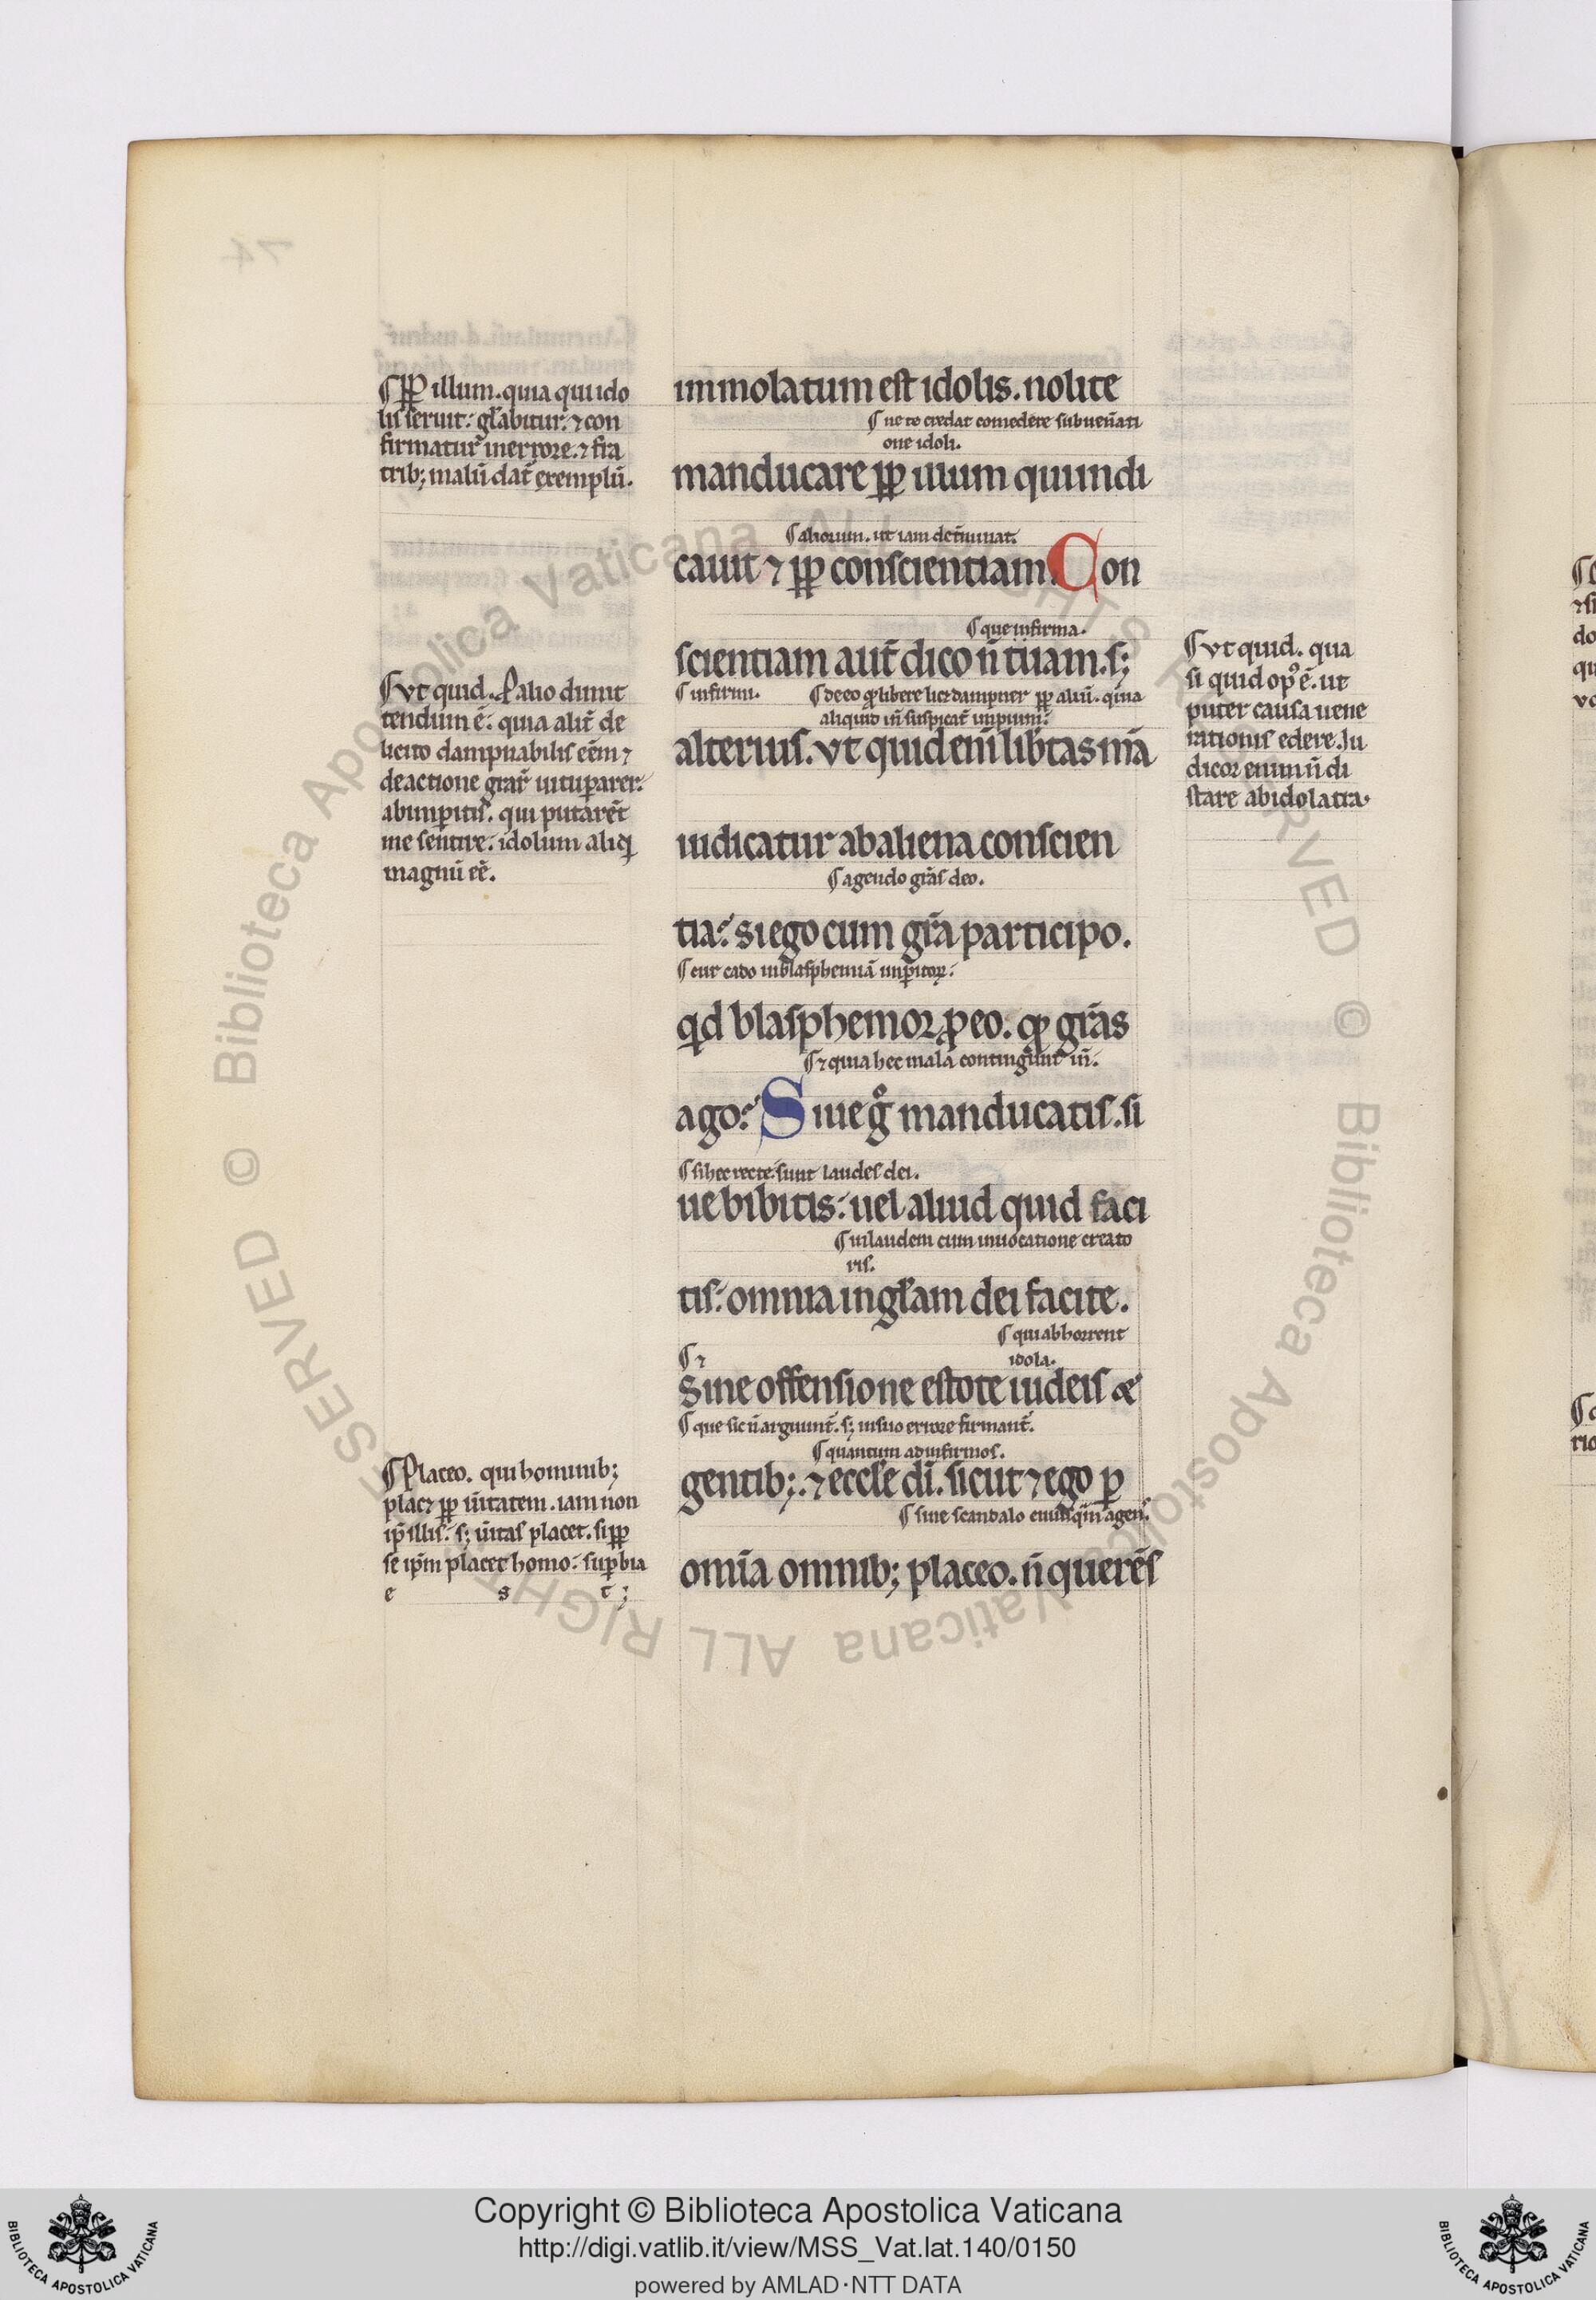 immolatum est idolis. nolite
¶ ne to credat comedere sub ueñati
one idoli.
manducare ꝓp illum qui indi
¶ aliorum. ut iam det̃minat.
cauit ⁊ ꝓp conscientiam. Con
¶ que infirma.
scientiam aut̃ dico ñ tuam. s;
¶ infirmi. ¶ deeo ꝙ libere licet dampner ꝓp aliũ. quia
aliquid iñ suspicat̃ imperium.
alterius. vt quid enĩ lib̃tas mã
iudicatur ab aliena conscien
¶ agendo grãs deo.
tia: si ego cum grã participo.
¶ cur cado in blasphemiã imperitoꝝ.
qd blasphemor ꝓ eo. ꝙ grãs
¶ ⁊ quia hec mala contingunt iñ.
ago: Siue gº manducatis. si
¶ si hec recte. sunt laudes dei.
ue bibitis: uel aliud quid faci
¶ in laudem cum inuocatione creato
ris.
tis: omnia in gl̃am dei facite.
¶ qui abhorrent
¶ ⁊ idola.
Sine offensione estote iudeis &
¶ que sic ñ arguunt̃. s; in suo errore firmant̃.
¶ quantum ad infirmos.
gentib;. ⁊ eccl̃e dĩ. sicut ⁊ ego ꝑ
¶ sine scandalo cuiusqm̃ agens.
omĩa omnib; placeo. ñ querẽs
¶ PP illum. quia qui ido
lis seruit: gl̃abitur: ⁊ con
firmatur in errore. ⁊ fra
trib; malũ dat̃ exemplũ.
¶ Vt quid. Palio dimit
tendum ẽ: quia alit̃ de
licito dampnabilis eẽm ⁊
de actione grar̃ uituparer:
ab imperitis. qui putarẽt
me sentire: idolum aliqͥ
magnũ eẽ.
¶ Placeo. qui hominib;
placet ꝓp ũitatem. iam non
ip̃e illis: s; ũitas placet. si ꝓp
se ip̃m placet homo: supbia
e s t ;
¶ Vt quid. qua
si quid op⁹ ẽ. ut
putet causa uene
rationis edere. Iu
dicor enim ñ di
stare ab idolatria.
Copyright © Biblioteca Apostolica Vaticana
http://digi.vatlib.it/view/MSS_Vat.lat.140/0150
powered by AMLAD·NTT DATA
BIBLIOTECA APOSTOLICA VATICANA
BIBLIOTECA APOSTOLICA VATICANA
© Biblioteca Apostolica Vaticana ALL RIGHTS RESERVED
© Biblioteca Apostolica Vaticana ALL RIGHTS RESERVED